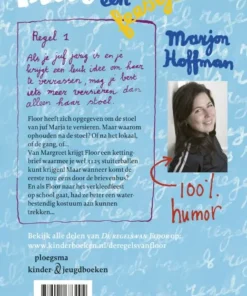 een feestje
Regel 1
Als je juf jarig is en je
krijgt een leuk idee om haar
te verrassen, mag je best
iets meer versieren dan
alleen haar stoel.
Marjon
Hoffman
Floor heeft zich opgegeven om de stoel
van juf Marja te versieren. Maar waarom
ophouden na de stoel? Of na het lokaal,
of de gang, of...
Van Margreet krijgt Floor een ketting-
brief waarmee je wel 3125 stuiterballen
kunt krijgen! Maar wanneer komt de
eerste nou eens door de brievenbus?
En als Floor naar het verkleedfeest
op school gaat, had ze beter een water-
bestendig kostuum aan kunnen
trekken...
100%
humor
Bekijk alle delen van
www.kinderboeken.nl/deregelsvanfloor
ploegsma
kinder- & jeugdboeken